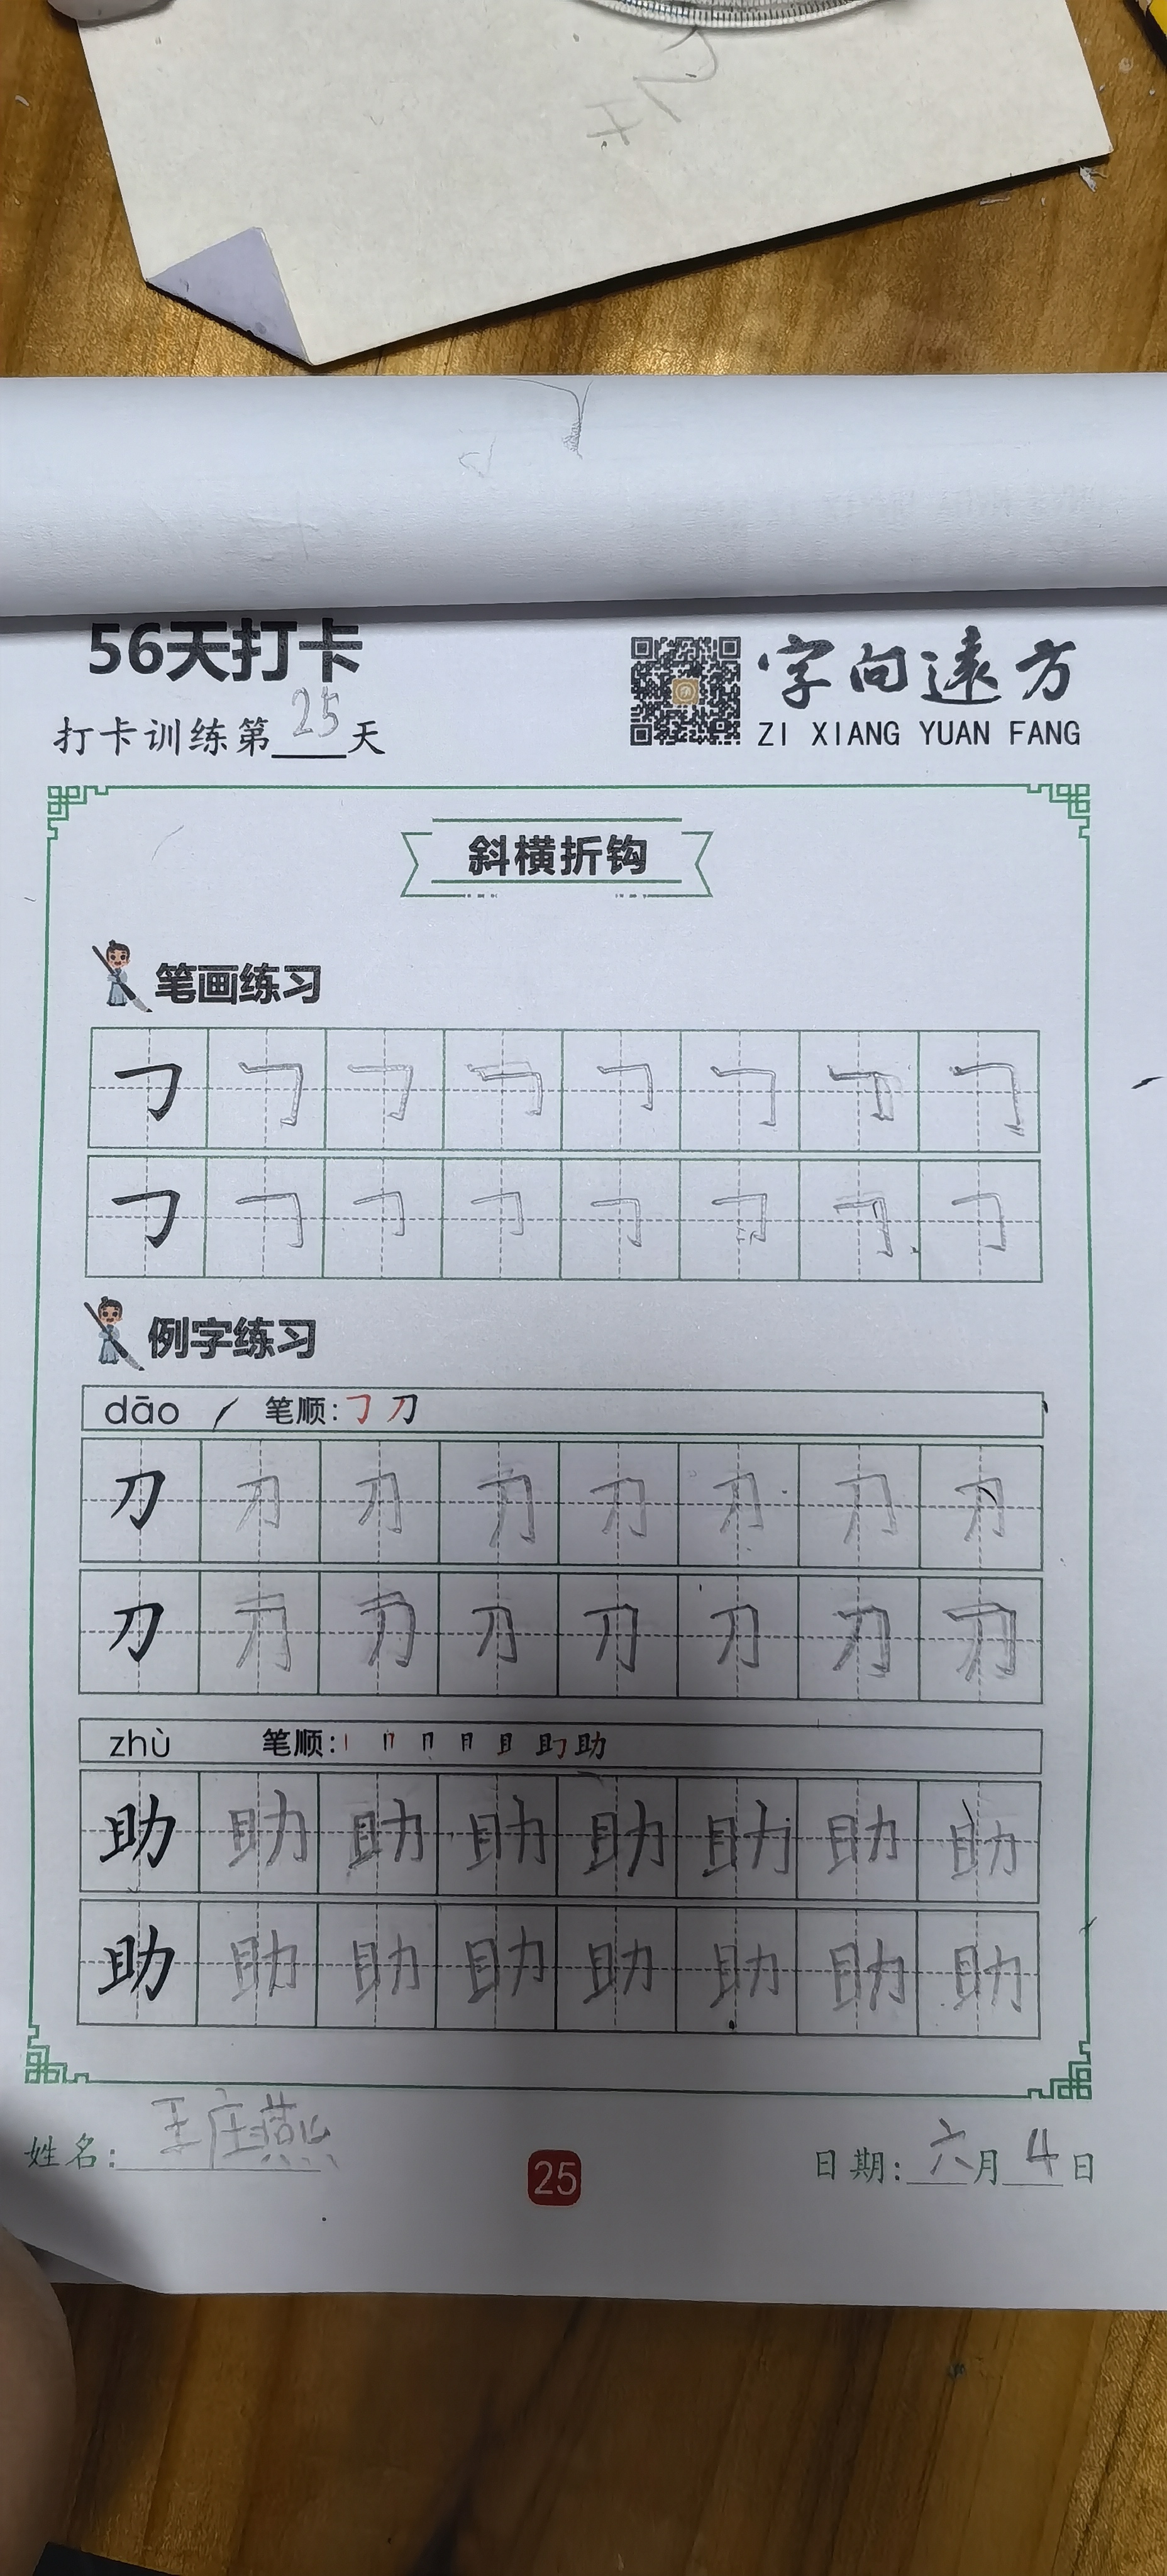 56天打卡
打卡训练第25天
字向遠方
ZI XIANG YUAN FANG
斜横折钩
笔画练习
㇆ ㇆ ㇆ ㇆ ㇆ ㇆ ㇆ ㇆
㇆ ㇆ ㇆ ㇆ ㇆ ㇆ ㇆ ㇆
例字练习
dāo 笔顺:㇆ 刀
刀 刀 刀 刀 刀 刀 刀 刀
刀 刀 刀 刀 刀 刀 刀 刀
zhù 笔顺:丨 冂 冂 月 且 助 助
助 助 助 助 助 助 助 助
助 助 助 助 助 助 助 助
姓名:王庄燕
25
日期:六月4日